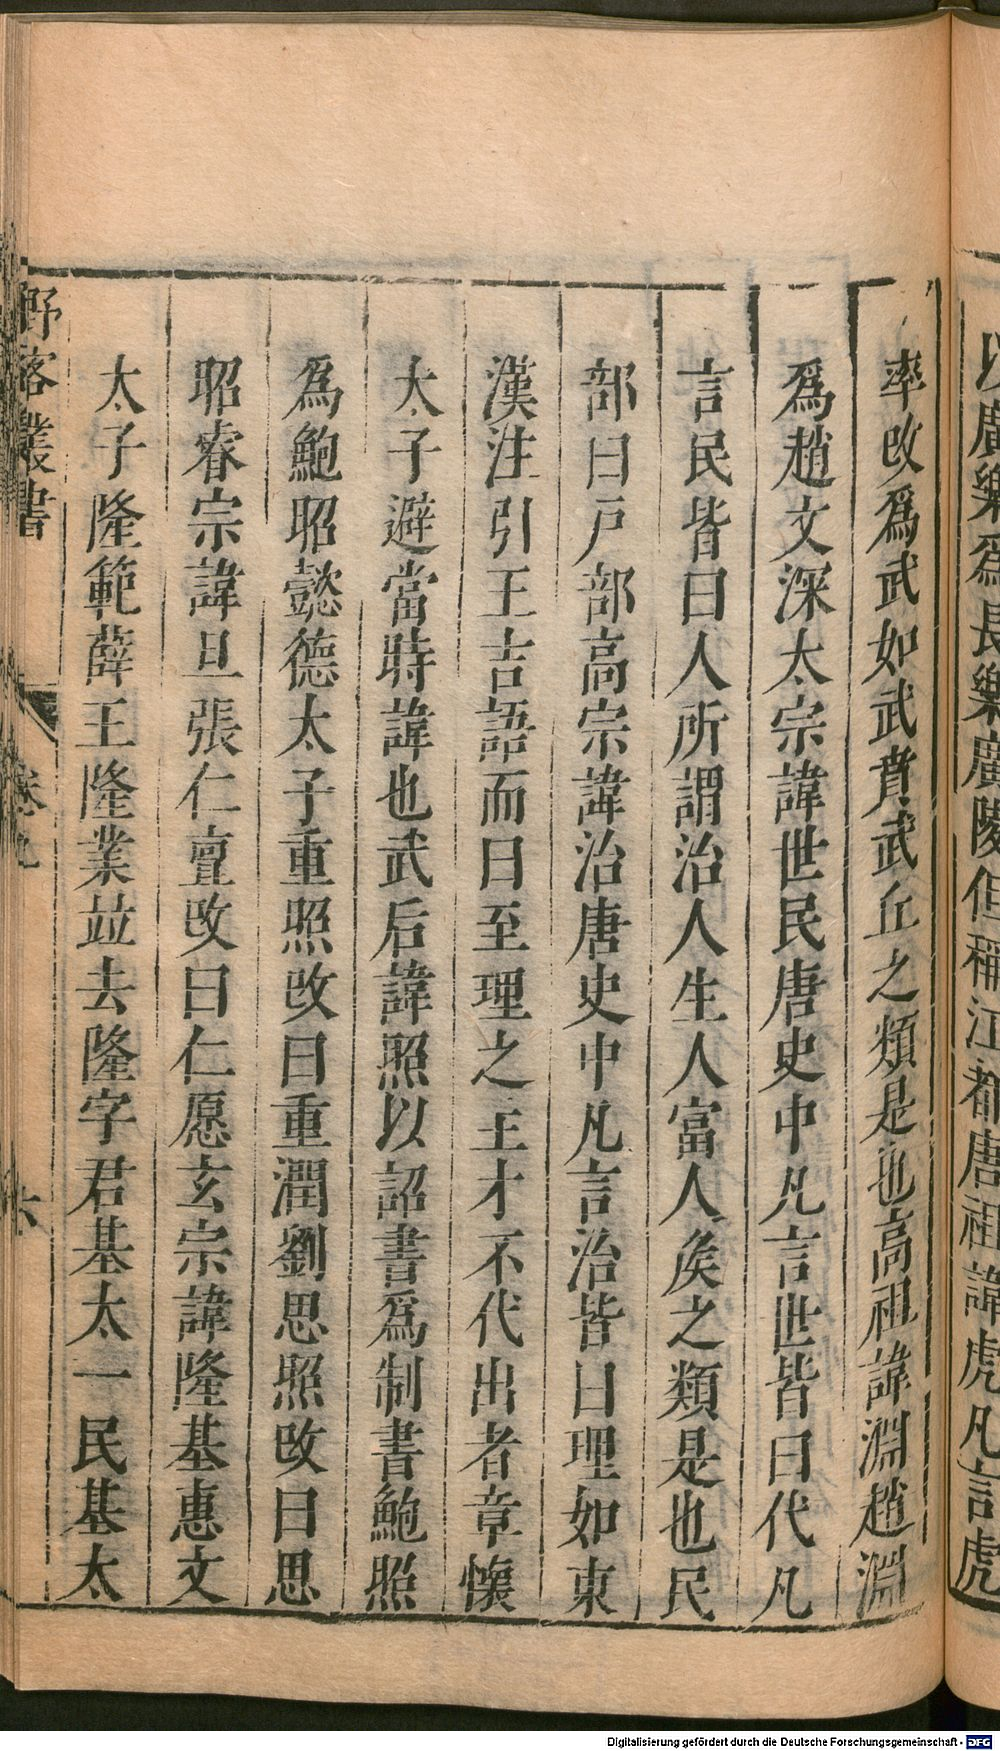 以廣樂為長樂廣陵但稱江都唐祖諱虎凡言虎
率改爲武如武賁武丘之類是也高祖諱淵趙淵
爲趙文深太宗諱世民唐史中凡言世皆曰代凡
言民皆曰人所謂治人生人富人矦之類是也民
部曰戸部高宗諱治唐史中凡言治皆曰理如東
漢注引王吉語而曰至理之主才不代出者章懷
太子避當時諱也武后諱照以詔書爲制書鮑照
爲鮑昭懿德太子重照改曰重潤劉思照改曰思
昭睿宗諱旦張仁亶改曰仁愿玄宗諱隆基惠文
太子隆範薛王隆業竝去隆字君基太一民基太
野客叢書
卷九
六
Digitalisierung gefördert durch die Deutsche Forschungsgemeinschaft - DFG